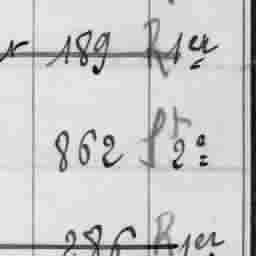 189 R 1er
862 St 2e
286 R 1er